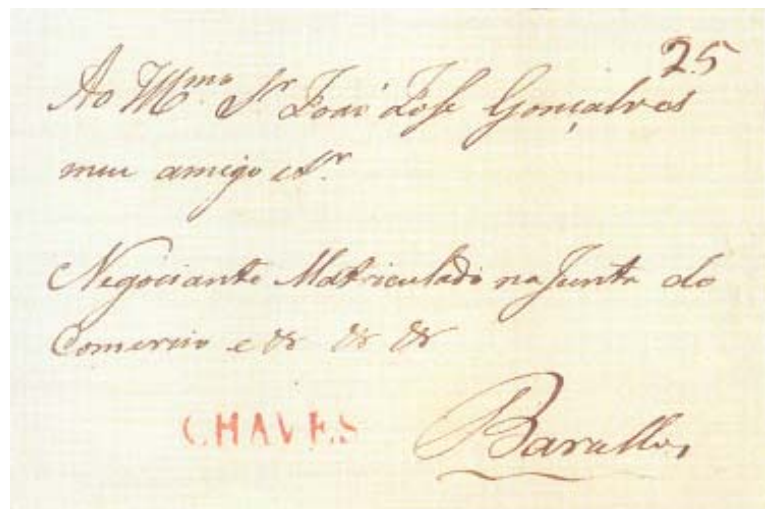 25
Ao Illmo Sr João José Gonçalves
meu amigo e Sr.
Negociante Matriculado na Junta do
Comercio e &r &r &r
CHAVES